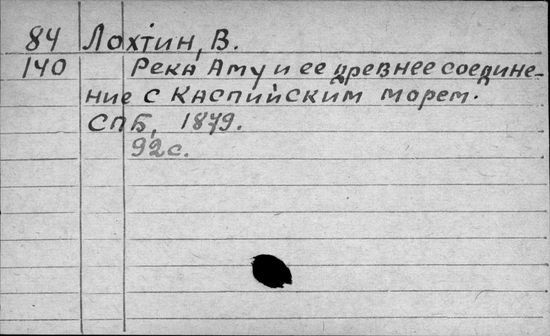 84 Лохтин, В.
140 Река Аму и ее древнее соедине-
ние с Каспийским морем.
СПБ, 1879.
92с.